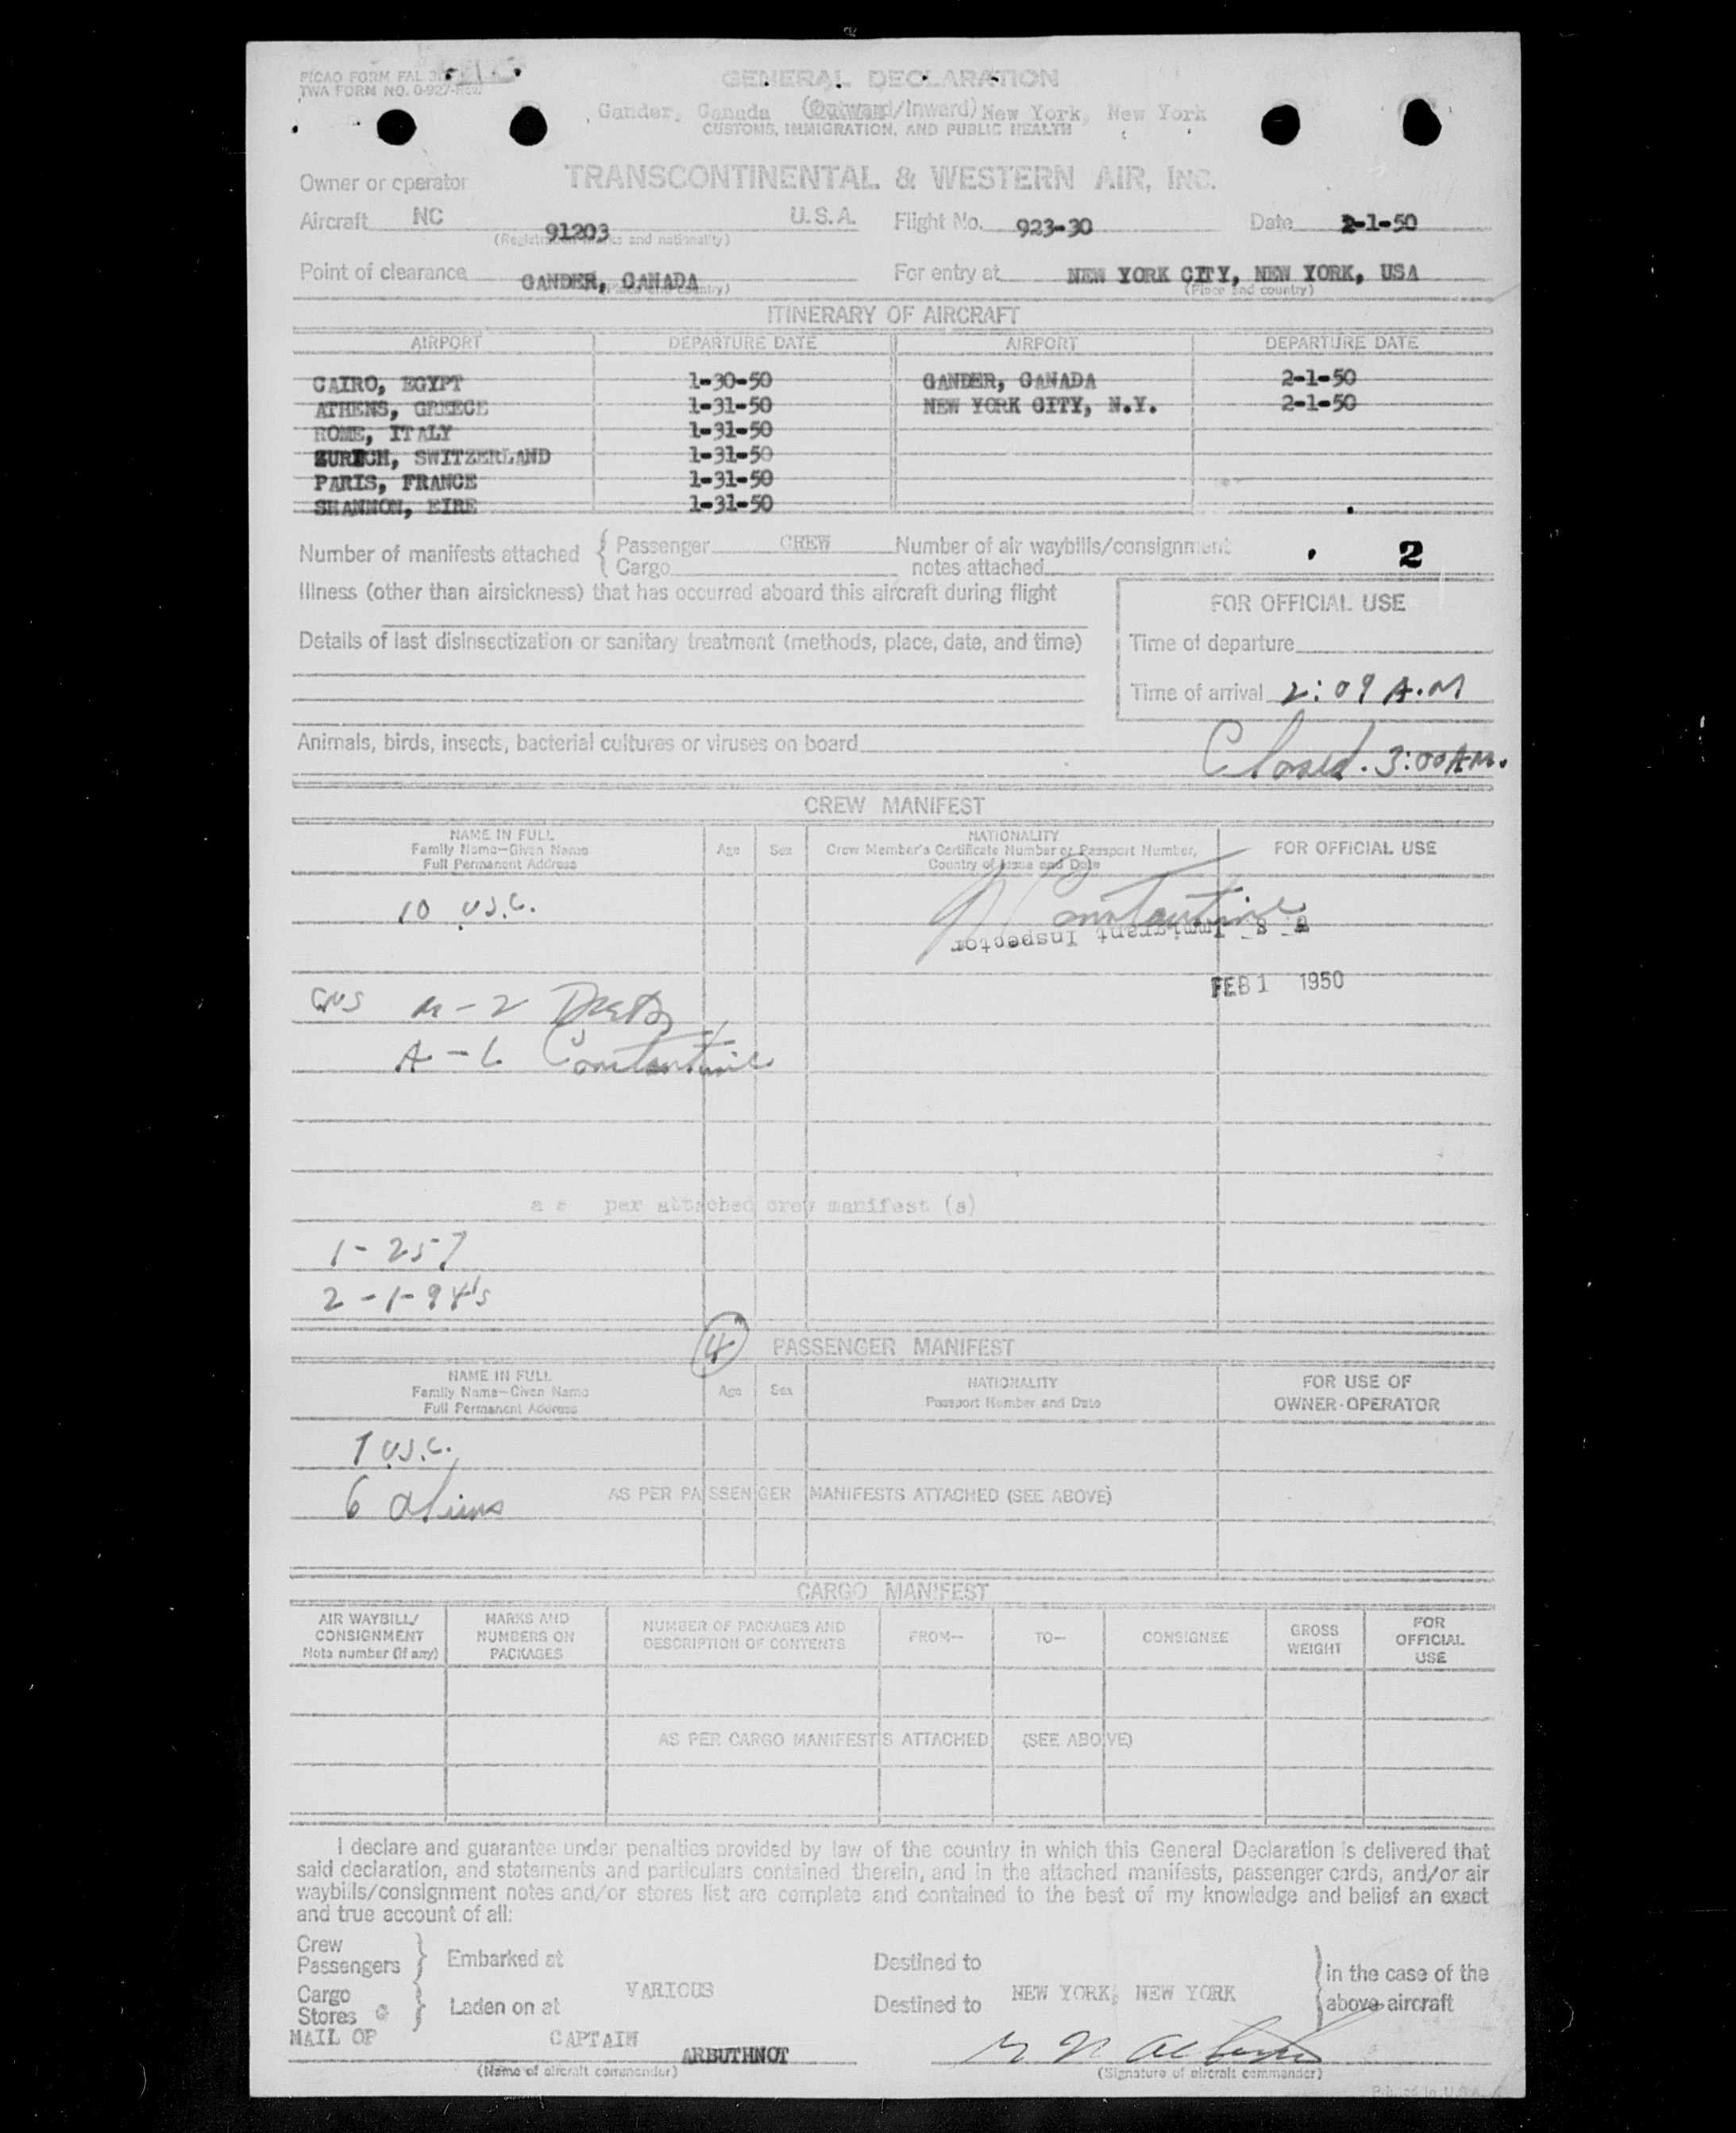 PICAO FORM FAL
TWA FORM NO. 0-927-
GENERAL DECLARATION
Gander, Canada (Outward/Inward) New York, New York
CUSTOMS, IMMIGRATION, AND PUBLIC HEALTH
Owner or operator TRANSCONTINENTAL & WESTERN AIR, INC.
Aircraft NC 91203 U.S.A. Flight No. 923-30 Date 2-1-50
(Registration marks and nationality)
Point of clearance GANDER, CANADA For entry at NEW YORK CITY, NEW YORK, USA
(Place and country) (Place and country)
ITINERARY OF AIRCRAFT
AIRPORT DEPARTURE DATE AIRPORT DEPARTURE DATE
CAIRO, EGYPT 1-30-50 GANDER, CANADA 2-1-50
ATHENS, GREECE 1-31-50 NEW YORK CITY, N.Y. 2-1-50
ROME, ITALY 1-31-50
ZURICH, SWITZERLAND 1-31-50
PARIS, FRANCE 1-31-50
SHANNON, EIRE 1-31-50
Number of manifests attached { Passenger CREW Number of air waybills/consignment 2
Cargo notes attached
Illness (other than airsickness) that has occurred aboard this aircraft during flight
FOR OFFICIAL USE
Details of last disinsectization or sanitary treatment (methods, place, date, and time)
Time of departure
Time of arrival 2:09 A.M
Animals, birds, insects, bacterial cultures or viruses on board
Closed. 3:00 A.M.
CREW MANIFEST
NAME IN FULL
Family Name—Given Name
Full Permanent Address
Age Sex
NATIONALITY
Crew Member's Certificate Number or Passport Number,
Country of Issue and Date
FOR OFFICIAL USE
10 U.S.C. Constantine
U. S. Immigrant Inspector
FEB 1 1950
M-2
A-L Constantine
as per attached crew manifest (s)
1-257
2-1-94's
4 PASSENGER MANIFEST
NAME IN FULL
Family Name—Given Name
Full Permanent Address
Age Sex
NATIONALITY
Passport Number and Date
FOR USE OF
OWNER-OPERATOR
U.S.C.
6 aliens AS PER PASSENGER MANIFESTS ATTACHED (SEE ABOVE)
CARGO MANIFEST
AIR WAYBILL/
CONSIGNMENT
Note number (if any)
MARKS AND
NUMBERS ON
PACKAGES
NUMBER OF PACKAGES AND
DESCRIPTION OF CONTENTS
FROM—
TO—
CONSIGNEE
GROSS
WEIGHT
FOR
OFFICIAL
USE
AS PER CARGO MANIFESTS ATTACHED (SEE ABOVE)
I declare and guarantee under penalties provided by law of the country in which this General Declaration is delivered that
said declaration, and statements and particulars contained therein, and in the attached manifests, passenger cards, and/or air
waybills/consignment notes and/or stores list are complete and contained to the best of my knowledge and belief an exact
and true account of all:
Crew
Passengers } Embarked at Destined to in the case of the
VARIOUS NEW YORK, NEW YORK
Cargo
Stores } Laden on at Destined to above aircraft
MAIL OF CAPTAIN ARBUTHNOT
(Name of aircraft commander) (Signature of aircraft commander)
Printed in U.S.A.